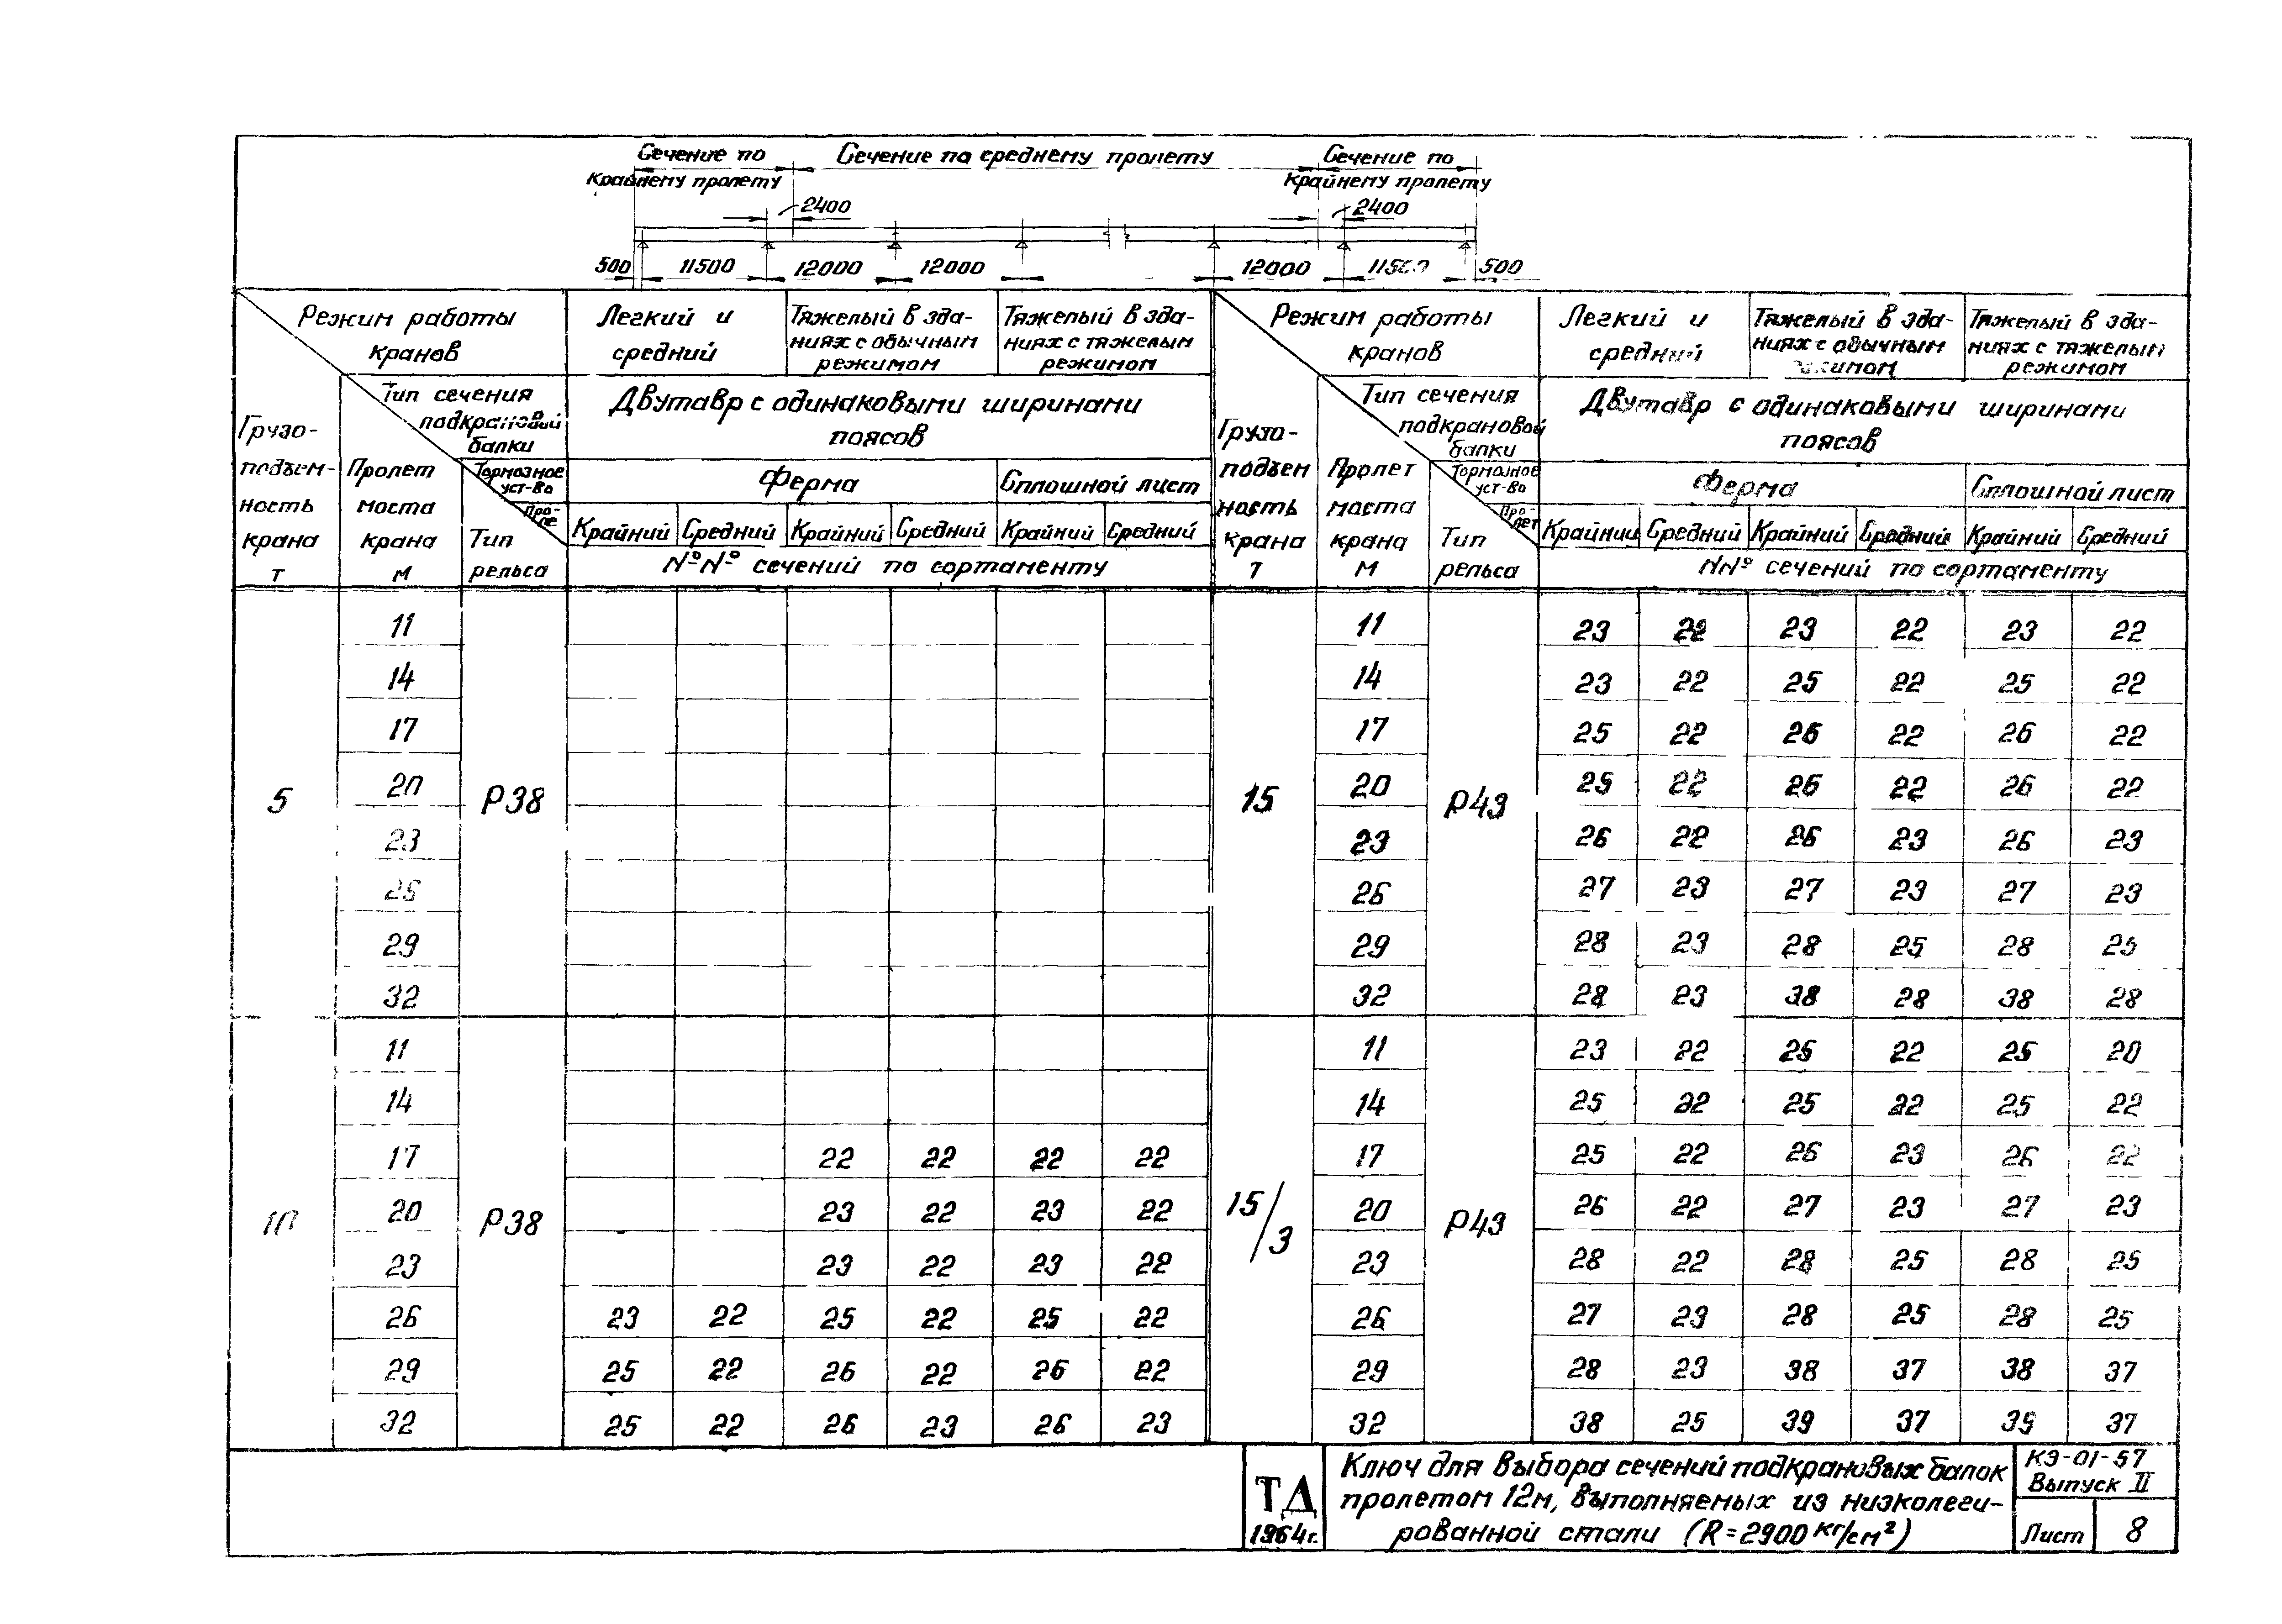 Сечение по
Крайнему пролету
Сечение по среднему пролету
Сечение по
Крайнему пролету
2400
2400
500 11500 12000 12000 12000 11500 500
Режим работы
кранов
Легкий и
средний
Тяжелый в зда-
ниях с обычным
режимом
Тяжелый в зда-
ниях с тяжелым
режимом
Тип сечения
подкрановой
балки
Двутавр с одинаковыми ширинами
поясов
Грузо-
подъем-
ность
крана
т
Пролет
моста
крана
м
Тормозное
уст-во
Про-
ле
Тип
рельса
Ферма
Сплошной лист
Крайний Средний Крайний Средний Крайний Средний
№№ сечений по сортаменту
5
Р38
11
14
17
20
23
26
29
32
10
Р38
11
14
17 22 22 22 22
20 23 22 23 22
23 23 22 23 22
26 23 22 25 22 25 22
29 25 22 26 22 26 22
32 25 22 26 23 26 23
Режим работы
кранов
Легкий и
средний
Тяжелый в зда-
ниях с обычным
режимом
Тяжелый в зда-
ниях с тяжелым
режимом
Тип сечения
подкрановой
балки
Двутавр с одинаковыми ширинами
поясов
Грузо-
подъем
ность
крана
т
Пролет
моста
крана
м
Тормозное
уст-во
Про-
лет
Тип
рельса
Ферма
Сплошной лист
Крайний Средний Крайний Средний Крайний Средний
NN° сечений по сортаменту
15
Р43
11 23 22 23 22 23 22
14 23 22 25 22 25 22
17 25 22 26 22 26 22
20 25 22 26 22 26 22
23 26 22 26 23 26 23
26 27 23 27 23 27 23
29 28 23 28 25 28 25
32 28 23 38 28 38 28
15/3
Р43
11 23 22 25 22 25 20
14 25 22 25 22 25 22
17 25 22 26 23 26 22
20 26 22 27 23 27 23
23 28 22 28 25 28 25
26 27 23 28 25 28 25
29 28 23 38 37 38 37
32 38 25 39 37 39 37
ТД
1964г.
Ключ для выбора сечений подкрановых балок
пролетом 12м, выполняемых из низколеги-
рованной стали (R=2900 кг/см²)
КЭ-01-57
Выпуск II
Лист 8